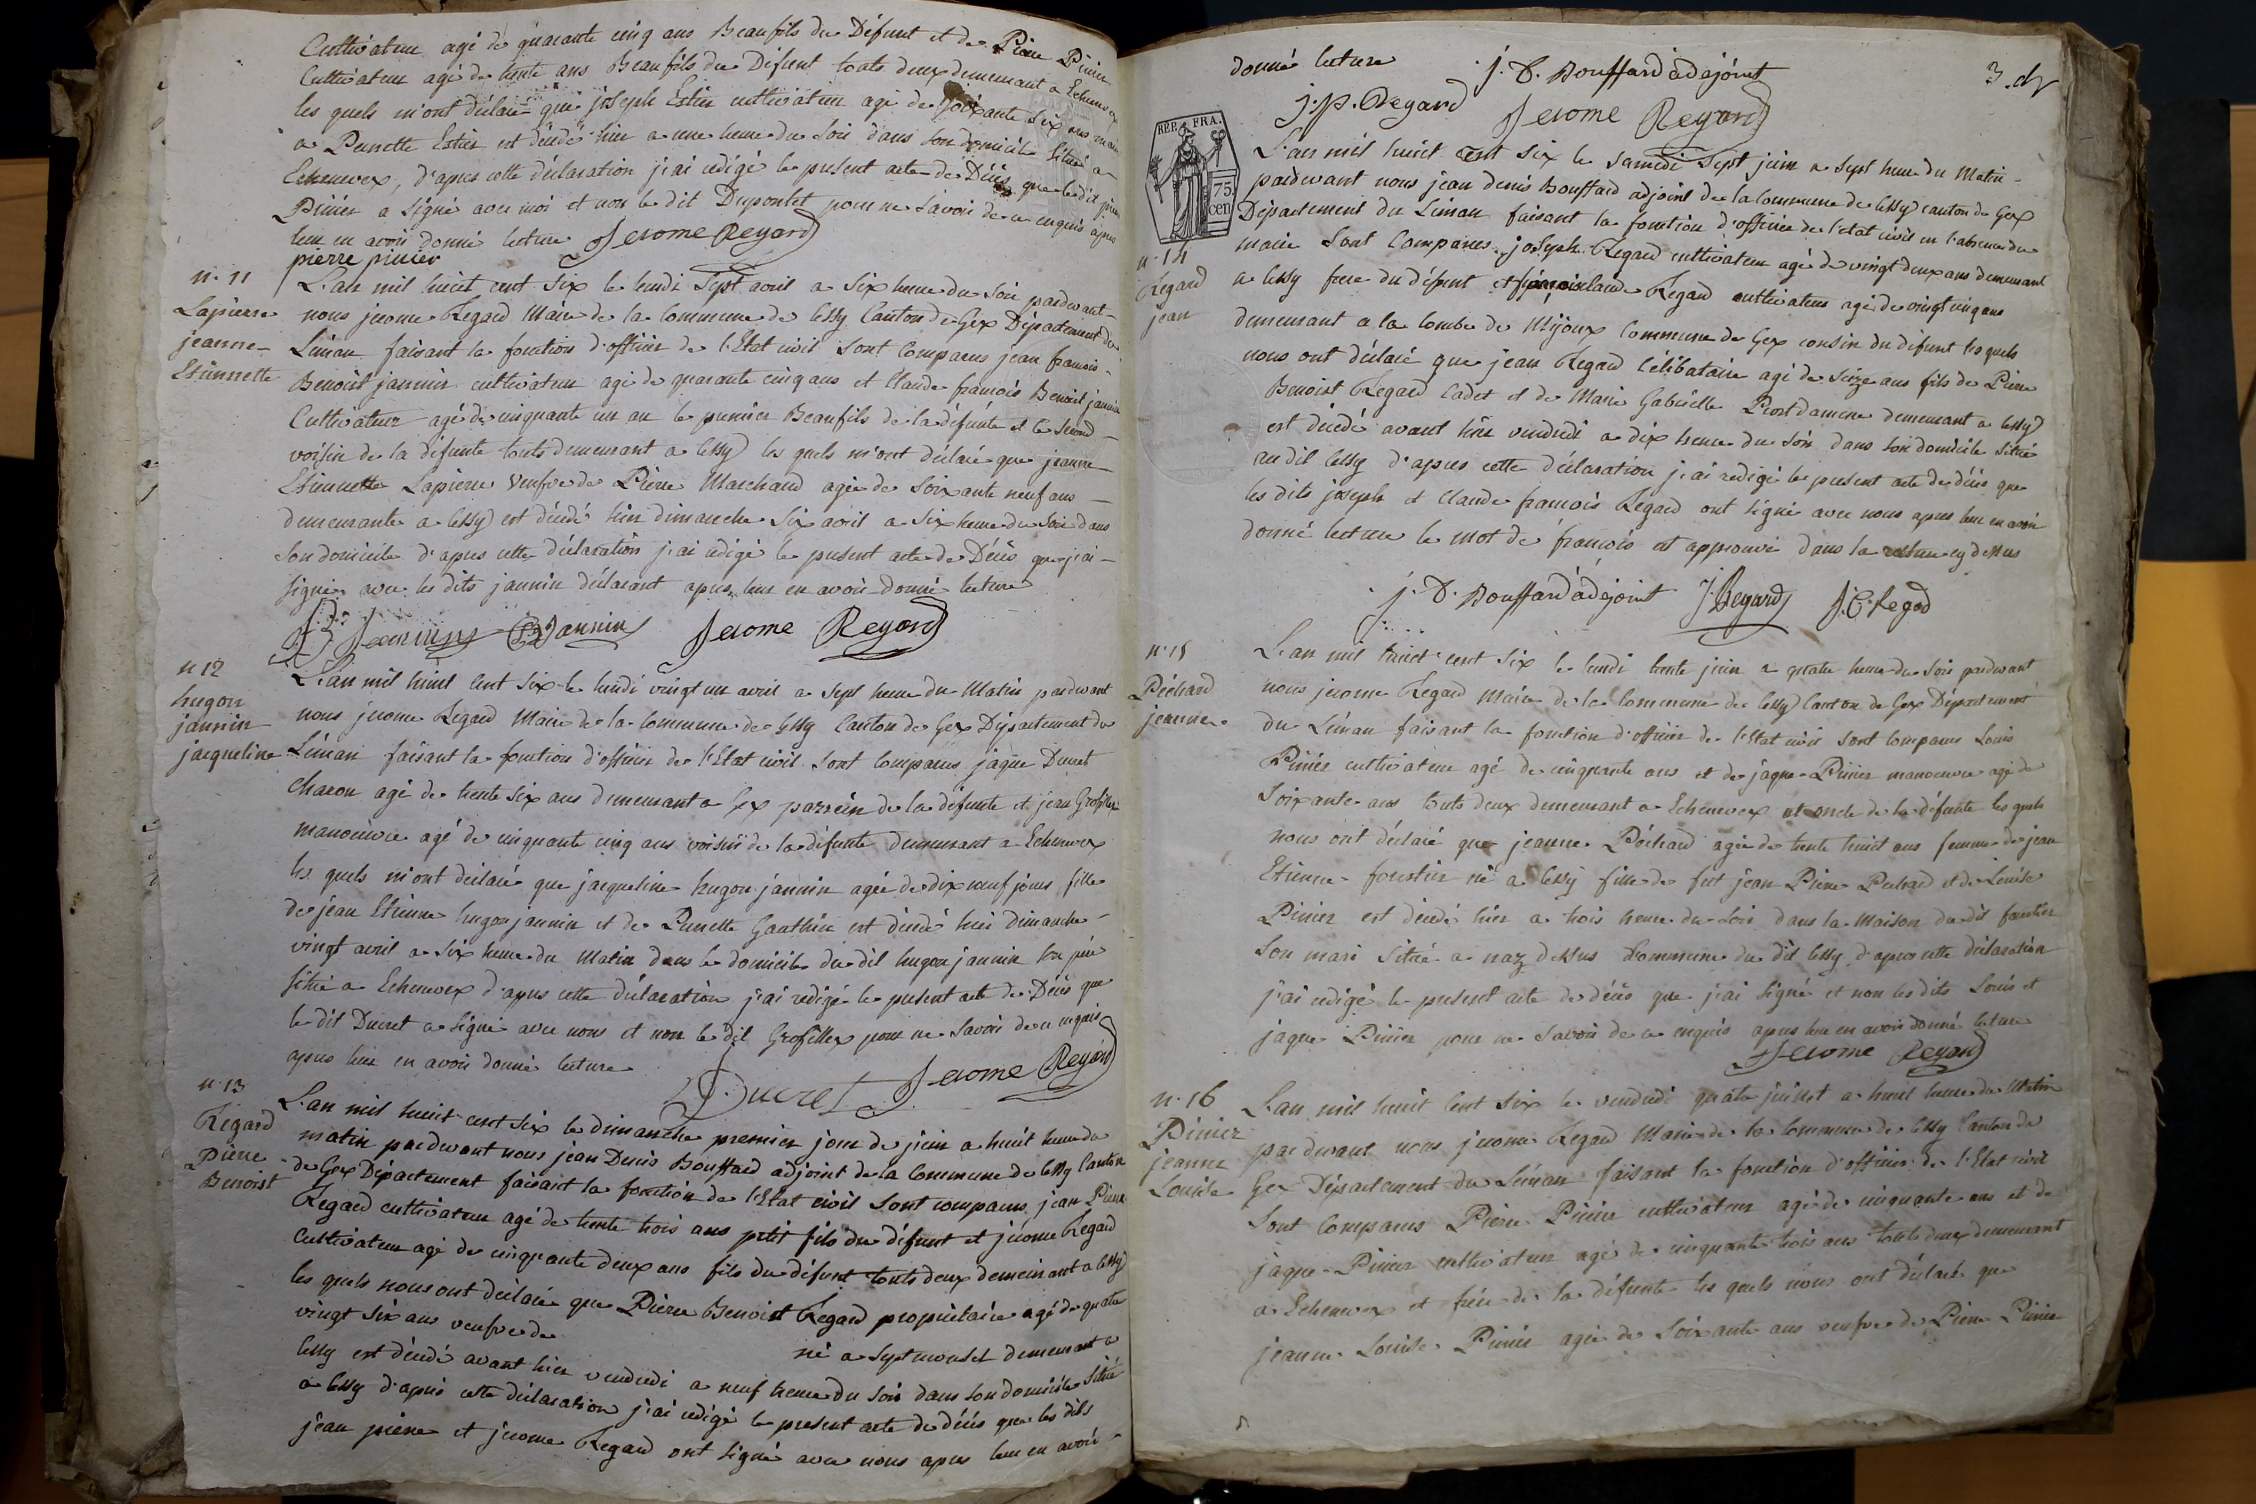 Cultivateur agé de quarante cinq ans Beaufils du Défunt et de Pierre Pinier
Cultivateur agé de trente ans Beaufils du Défunt touts deux demeurant a Echenevex
les quels m'ont déclaré que joseph Estier cultivateur agé de soixante six ans
a Pernette Estier est décédé hier a une heure du soir dans son domicile situé a
Echenevex, d'apres cette déclaration j'ai redigé le present acte de Décés que le dit pierre
Pinier a signé avec moi et non le dit Dupontet pour ne savoir de ce enquis apres
leur en avoir donné lecture Jerome Regard
pierre pinier
n. 11
Lapierre
jeanne
Etiennette
L'an mil huict cent six le lundi sept avril a six heure du soir pardevant
nous jerome Regard Maire de la Commune de Cessy Canton de Gex Département du
Léman faisant la fonction d'officier de l'Etat civil sont comparus jean francois
Benoist jannin cultivateur agé de quarante cinq ans et Claude francois Benoist jannin
Cultivateur agé de cinquante un an le premier Beaufils de la défunte et le second
voisin de la défunte touts demeurant a Cessy les quels m'ont déclaré que jeanne
Etiennette Lapierre veufve de Pierre Marchand agée de soixante neuf ans
demeurante a Cessy est décédé hier dimanche six avril a six heure du soir dans
son domicile d'apres cette déclaration j'ai redigé le present acte de Décés que j'ai
signé avec les dits jannin déclarant apres leur en avoir donné lecture
Jannin Jannin Jerome Regard
n 12
hugon
jannin
jacqueline
L'an mil huict cent six le lundi vingt un avril a sept heure du Matin pardevant
nous jerome Regard Maire de la Commune de Cessy Canton de Gex Département du
Léman faisant la fonction d'officier de l'Etat civil sont comparus jaque Ducret
charon agé de trente six ans demeurant a Gex parrein de la défunte et jean Grosfillex
manoeuvre agé de cinquante cinq ans voisin de la défunte demeurant a Echenevex
les quels m'ont déclaré que jacqueline hugon jannin agée de dix neuf jours fille
de jean Etienne hugon jannin et de Pernette Gauthier est décédé hier dimanche
vingt avril a six heure du Matin dans le domicile du dit hugon jannin son pére
situé a Echenevex d'apres cette déclaration j'ai redigé le present acte de Décés que
le dit Ducret a signé avec nous et non le dit Grosfillex pour ne savoir de ce enquis
apres leur en avoir donné lecture
Ducret Jerome Regard
n. 13
Regard
Pierre
Benoist
L'an mil huict cent six le dimanche premier jour de juin a huit heure du
matin pardevant nous jean Denis Bouffard adjoint de la Commune de Cessy Canton
de Gex Département faisant la fonction de l'Etat civil sont comparus jean Pierre
Regard cultivateur agé de trente trois ans petit fils du défunt et jerome Regard
Cultivateur agé de cinquante deux ans fils du défunt touts deux demeurant a Cessy
les quels nous ont déclaré que Pierre Benoist Regard propriétaire agé de quatre
vingt six ans veufve de
né a Septmoncel demeurant a
Cessy est décédé avant hier vendredi a neuf heure du soir dans son domicile situé
a Cessy d'apres cette déclaration j'ai redigé le present acte de décés que les dits
jean pierre et jerome Regard ont signé avec nous apres leur en avoir
3.
donné lecture j. D. Bouffard adejóint
j. p. Regard Jerome Regard
REP. FRA.
75
cen
n. 14
Regard
jean
L'an mil huict cent six le samedi sept juin a sept heure du Matin
pardevant nous jean denis Bouffard adjoint de la Commune de Cessy canton de Gex
Département du Léman faisant la fonction d'officier de l'etat civil en l'absence du
maire sont Comparus joseph Regard cultivateur agé de vingt deux ans demeurant
a Cessy frere du défunt et Regard cultivateur agé de vingt cinq ans
demeurant a la Combe de Mijoux Commune de Gex cousin du défunt les quels
nous ont déclaré que jean Regard Célibataire agé de seize ans fils de Pierre
Benoist Regard Cadet et de Marie Gabrielle demeurant a Cessy
est décédé avant hier vendredi a dix heure du soir dans son domicile situé
au dit Cessy d'apres cette déclaration j'ai redigé le present acte de décés que
les dits joseph et Claude francois Regard ont signé avec nous apres leur en avoir
donné lecture le mot de francois est approuvé dans la cy dessus
j. D. Bouffard adejoint J Regard J. C. Regad
n. 15
Péchard
jeanne
L'an mil huict cent six le lundi trente juin a quatre heure du soir pardevant
nous jerome Regard Maire de la Commune de Cessy Canton de Gex Département
du Léman faisant la fonction d'officier de l'Etat civil sont comparus Louis
Pinier cultivateur agé de cinquante ans et de jaque Pinier manoeuvre agé de
soixante ans touts deux demeurant a Echenevex et oncle de la défunte les quels
nous ont déclaré que jeanne Péchard agée de trente huict ans femme de jean
Etienne forestier né a Cessy fille de fut jean Pierre Pechard et de Louise
Pinier est décédé hier a trois heure du soir dans la Maison du dit
son mari situé a naz dessus Commune du dit Cessy d'apres cette déclaration
j'ai redigé le present acte de décés que j'ai signé et non les dits Louis et
jaque Pinier pour ne savoir de ce enquis apres leur en avoir donné lecture
Jerome Regard
n. 16
Pinier
jeanne
Louise
L'an mil huit cent six le vendredi quatre juillet a huit heure du Matin
par devant nous jerome Regard Maire de la Commune de Cessy Canton de
Gex Département du Léman faisant la fonction d'officier de l'Etat civil
sont Comparus Pierre Pinier cultivateur agé de cinquante ans et de
jaque Pinier cultivateur agé de cinquante trois ans touts deux demeurant
a Echenevex et frére de la défunte les quels nous ont déclaré que
jeanne Louise Pinier agée de soixante ans veufve de Pierre Pinier